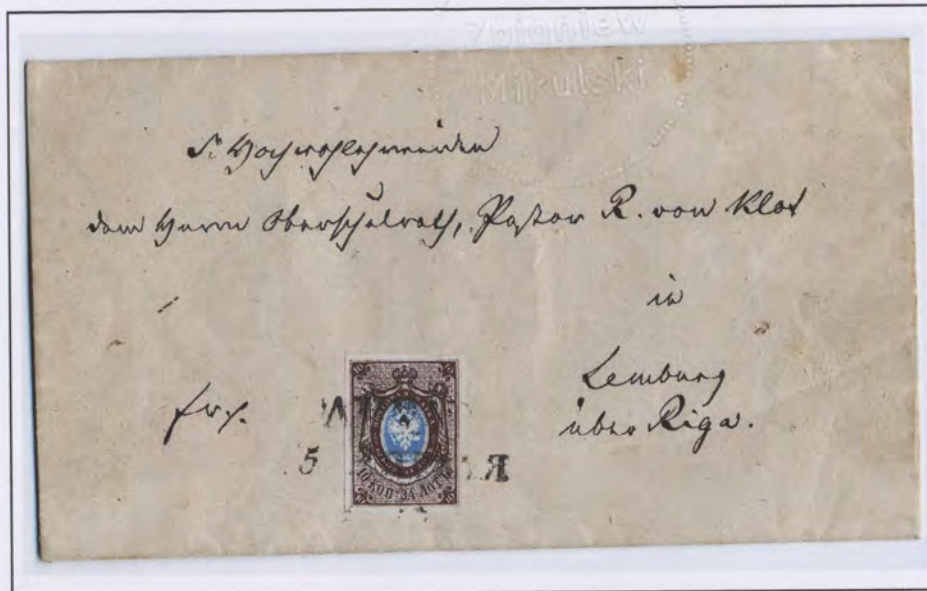 Zbigniew
Mikulski
Sr Hochwohlehrwürden
dem Herrn Oberschulrath, Pastor R. von Klot
in
Lemburg
über Riga.
frc.
5
Я
10 КОП. ЗА ЛОТЪ